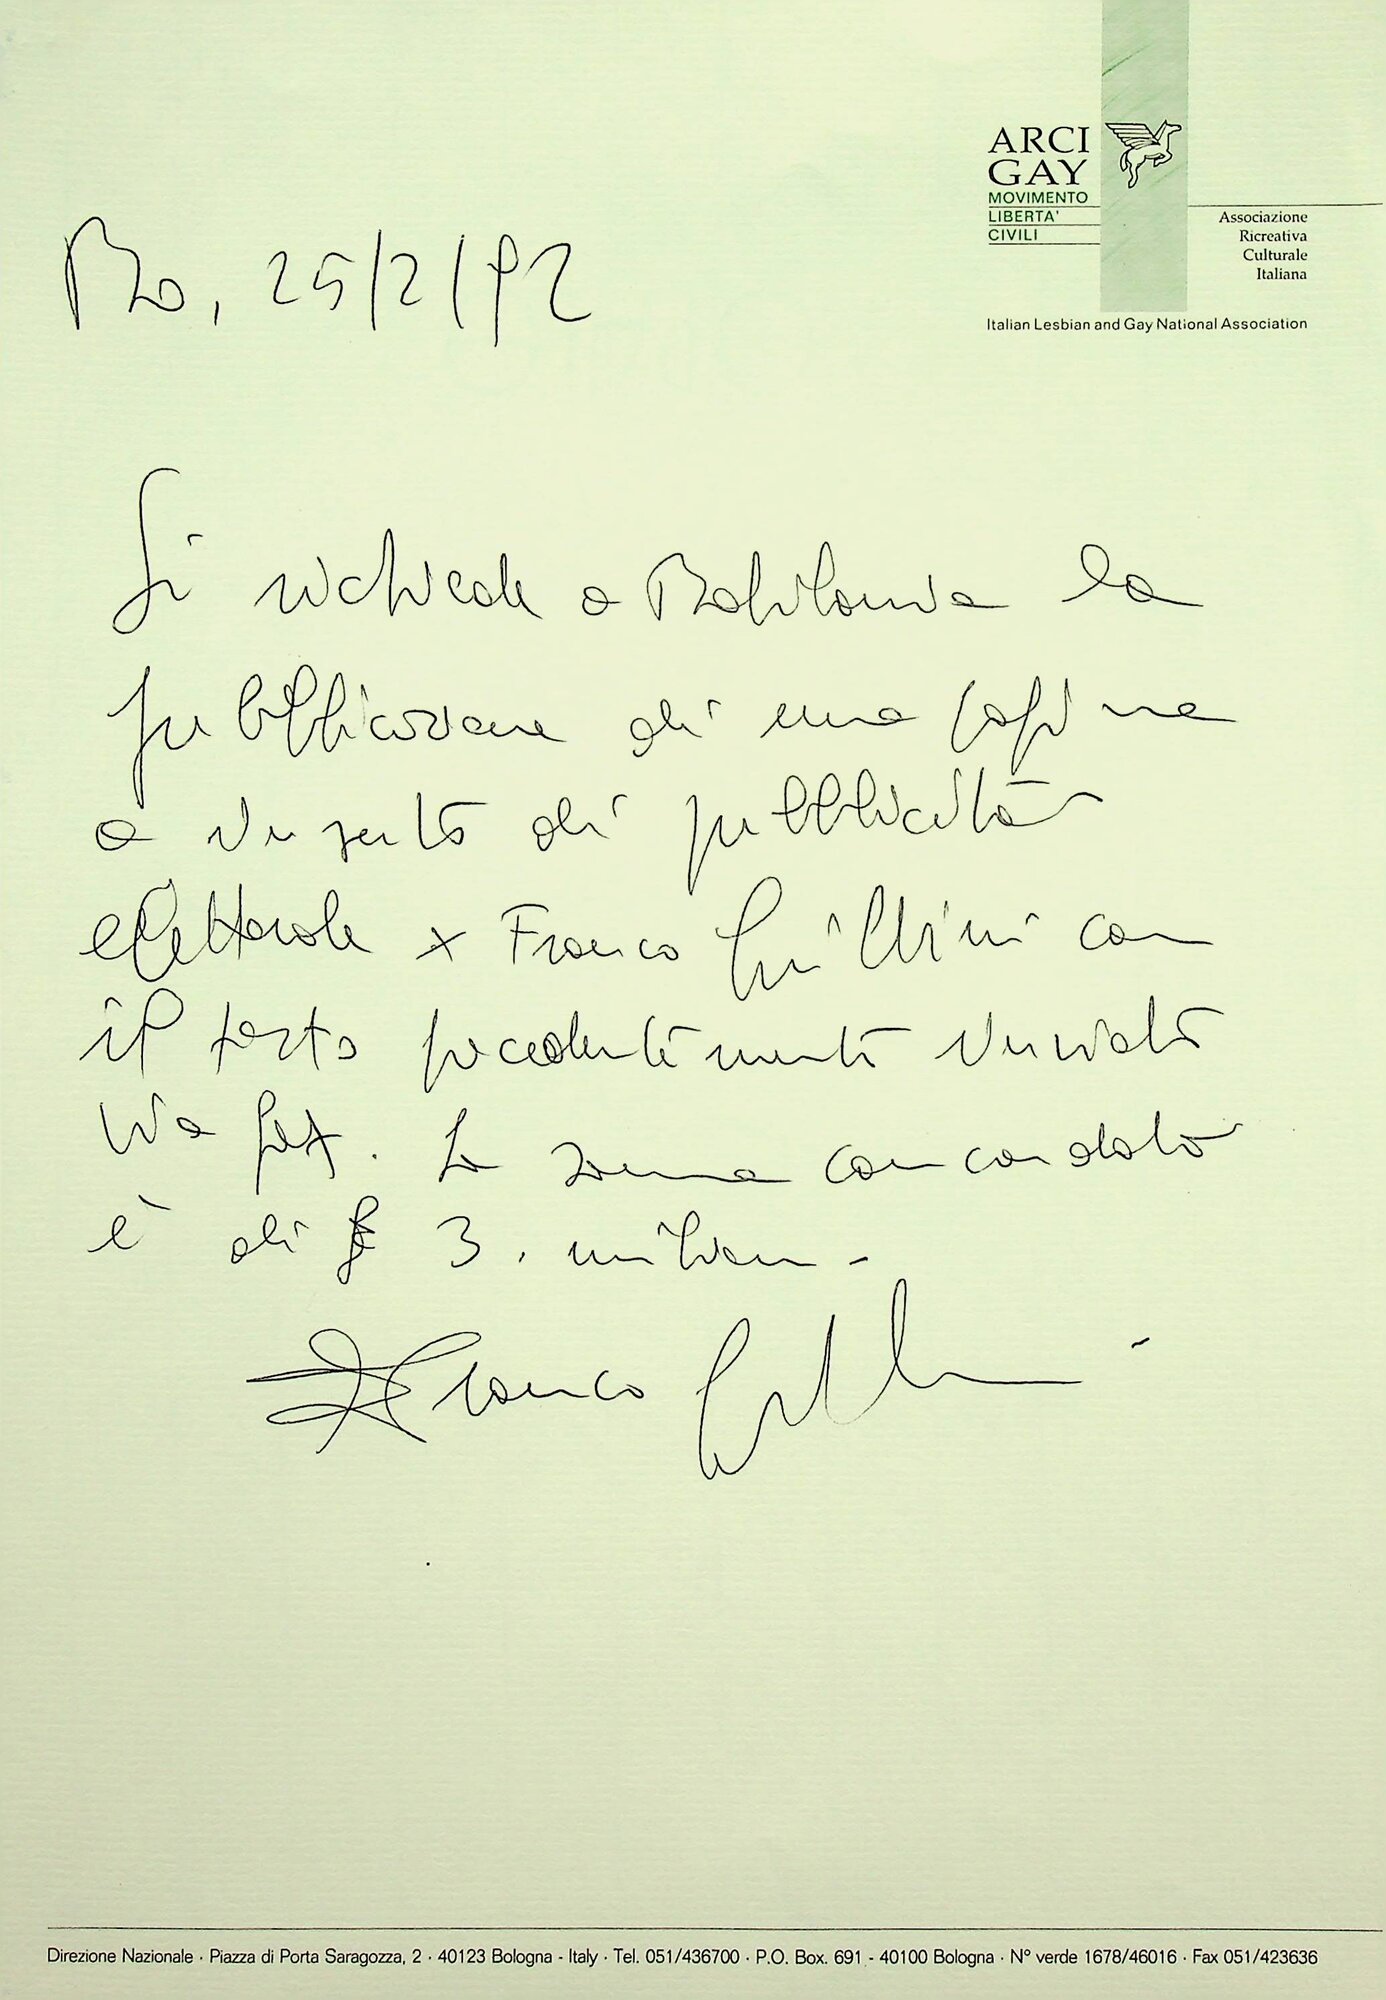 ARCI
GAY
MOVIMENTO
LIBERTA'
CIVILI
Associazione
Ricreativa
Culturale
Italiana
Italian Lesbian and Gay National Association
Bo, 25/2/92
Si richiede a Babilonia la
pubblicazione di una copina
o inserto di pubblicità
elettorale x Franco Grillini con
il testo precedentemente inviato
via fax. La somma concordata
è di £ 3. milioni.
Franco Grillini
Direzione Nazionale · Piazza di Porta Saragozza, 2 · 40123 Bologna - Italy · Tel. 051/436700 · P.O. Box. 691 - 40100 Bologna · N° verde 1678/46016 · Fax 051/423636